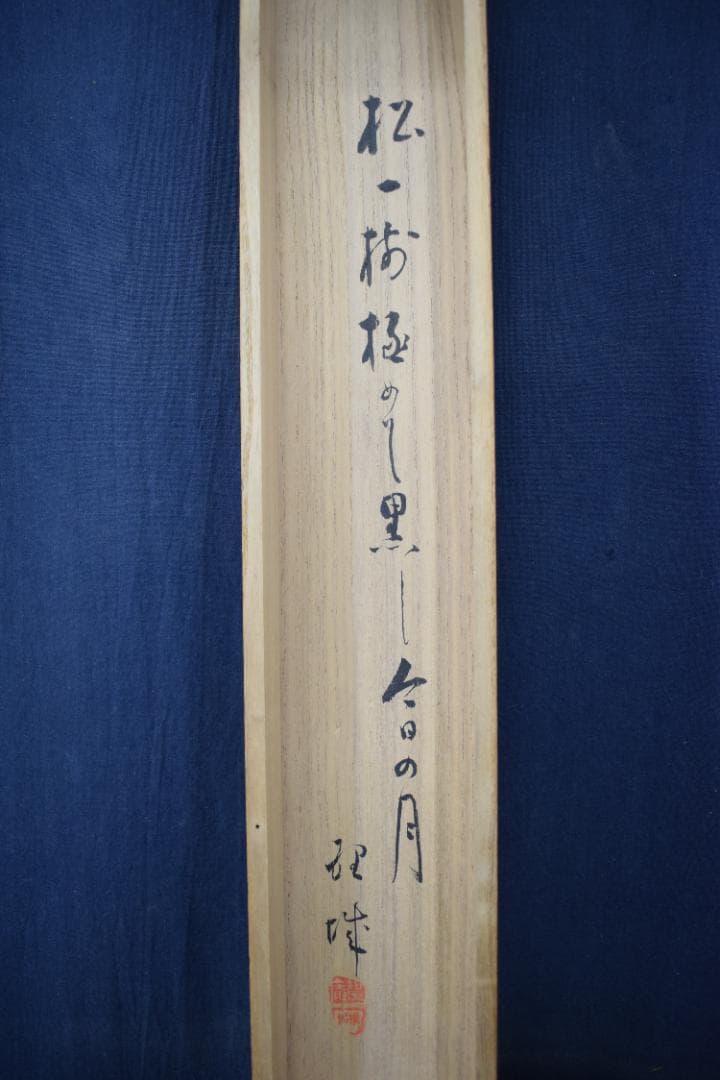 松一樹極めて黒し今日の月
理城